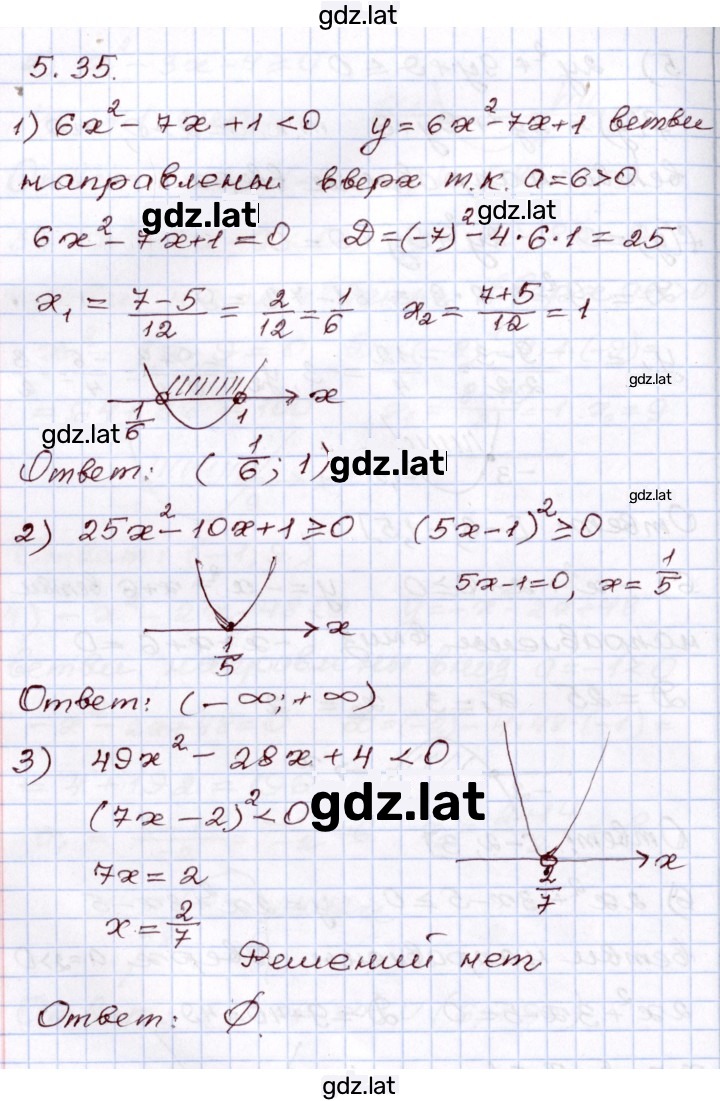 gdz.lat
5.35.
1) 6x² - 7x + 1 < 0 y = 6x² - 7x + 1 ветви
направлены вверх т.к. a = 6 > 0
gdz.lat gdz.lat
6x² - 7x + 1 = 0 D = (-7)² - 4·6·1 = 25
x₁ = (7-5)/12 = 2/12 = 1/6 x₂ = (7+5)/12 = 1
gdz.lat
1/6 1 x
gdz.lat
Ответ: (1/6; 1) gdz.lat
gdz.lat
2) 25x² - 10x + 1 ≥ 0 (5x-1)² ≥ 0
5x-1=0, x = 1/5
1/5 x
Ответ: (-∞; +∞)
3) 49x² - 28x + 4 < 0
(7x - 2)² < 0 gdz.lat
7x = 2
x = 2/7
2/7 x
Решений нет
Ответ: ∅.
gdz.lat